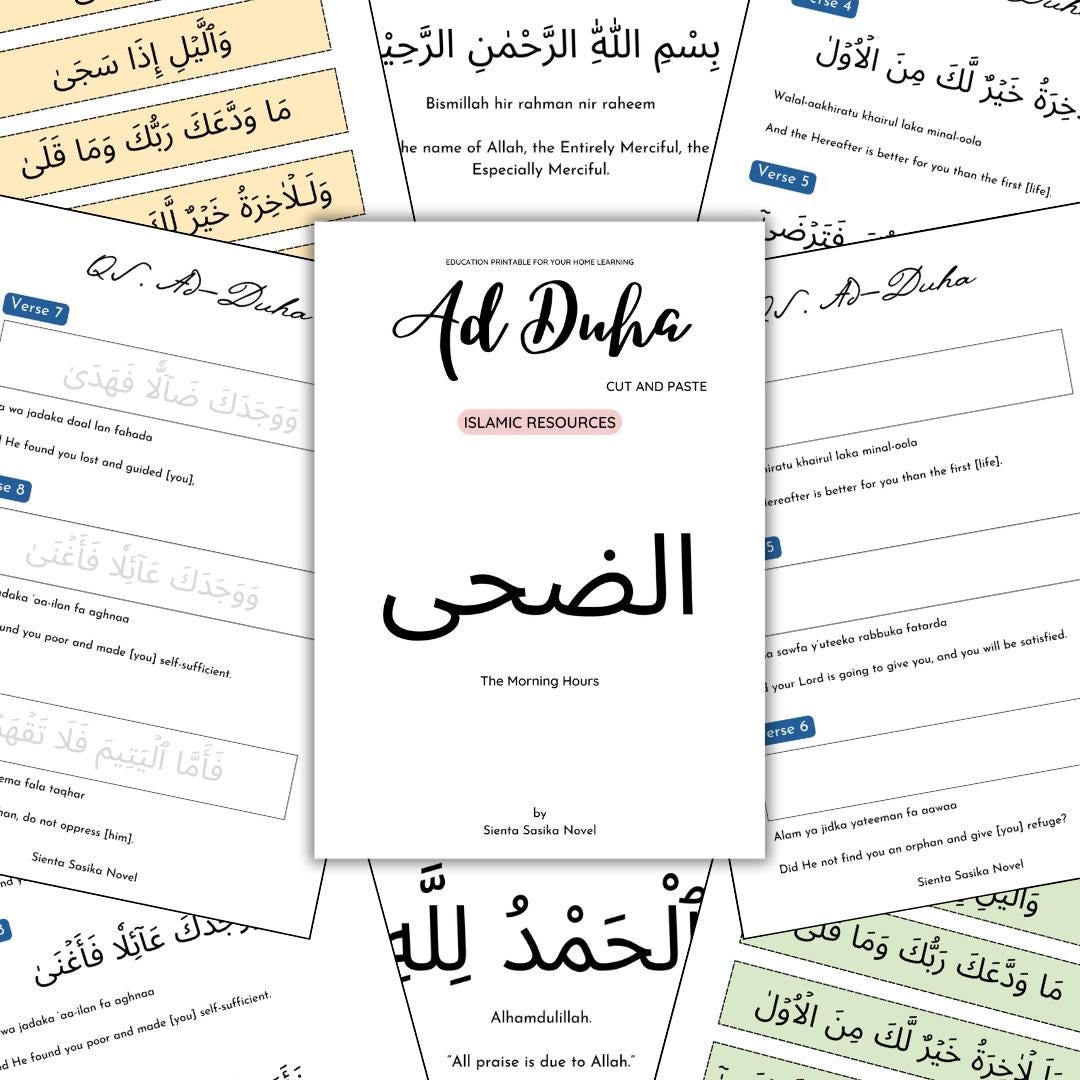 وَٱلَّيْلِ إِذَا سَجَىٰ
مَا وَدَّعَكَ رَبُّكَ وَمَا قَلَىٰ
وَلَلْأَخِرَةُ خَيْرٌ لَّكَ
بِسْمِ اللّٰهِ الرَّحْمٰنِ
Bismillah hir rahman nir raheem
he name of Allah, the Entirely Merciful, the
Especially Merciful.
Verse 4
خَيْرٌ لَّكَ مِنَ الْاُوْلٰ
Walal-aakhiratu khairul laka minal-oola
And the Hereafter is better for you than the first [life].
Verse 5
فَتَرْضَىٰ
QS. Ad-Duha
Verse 7
وَوَجَدَكَ ضَآلًّا فَهَدَىٰ
wa jadaka daal lan fahada
He found you lost and guided [you],
8
وَوَجَدَكَ عَآئِلًا فَأَغْنَىٰ
jadaka 'aa-ilan fa aghnaa
found you poor and made [you] self-sufficient.
فَأَمَّا ٱلْيَتِيمَ فَلَا تَقْهَرْ
fala taqhar
do not oppress [him].
Sienta Sasika Novel
EDUCATION PRINTABLE FOR YOUR HOME LEARNING
Ad Duha
CUT AND PASTE
ISLAMIC RESOURCES
الضحى
The Morning Hours
by
Sienta Sasika Novel
QS. Ad-Duha
khairul laka minal-oola
Hereafter is better for you than the first [life].
5
sawfa y'uteeka rabbuka fatarda
your Lord is going to give you, and you will be satisfied.
Verse 6
Alam ya jidka yateeman fa aawaa
Did He not find you an orphan and give [you] refuge?
Sienta Sasika Novel
عَآئِلًا فَأَغْنَىٰ
wa jadaka 'aa-ilan fa aghnaa
He found you poor and made [you] self-sufficient.
ٱلْحَمْدُ لِلَّهِ
Alhamdulillah.
“All praise is due to Allah.”
وَالَّيْلِ
مَا وَدَّعَكَ رَبُّكَ وَمَا قَلَىٰ
خَيْرٌ لَّكَ مِنَ الْاُوْلٰ
خَيْرٌ لَّكَ